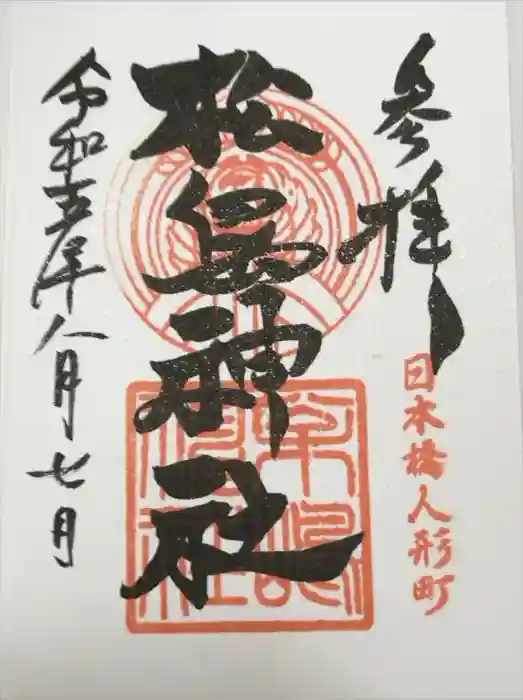 参拝
日本橋人形町
松島神社
令和五年八月七日